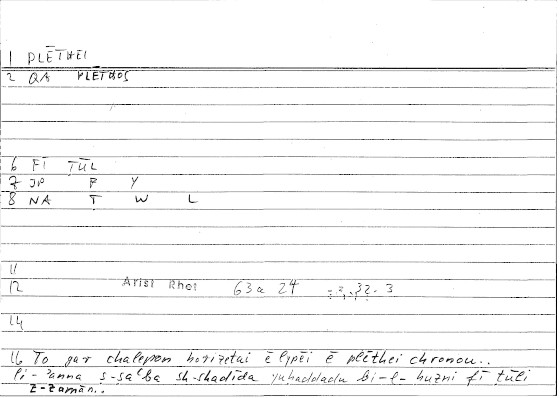 1 PLĒTHEI
2 QA PLĒTHOS
6 FĪ ṬŪL
7 JP F Y
8 NA Ṭ W L
11
12 Arist Rhet 63a 24 32-3
14
16 To gar chalepon horizetai ē lypēi ē plēthei chronou..
li-ʾanna ṣ-ṣaʿba sh-shadīda yuḥaddadu bi-l-ḥuzni fī ṭūli
z-zamān..